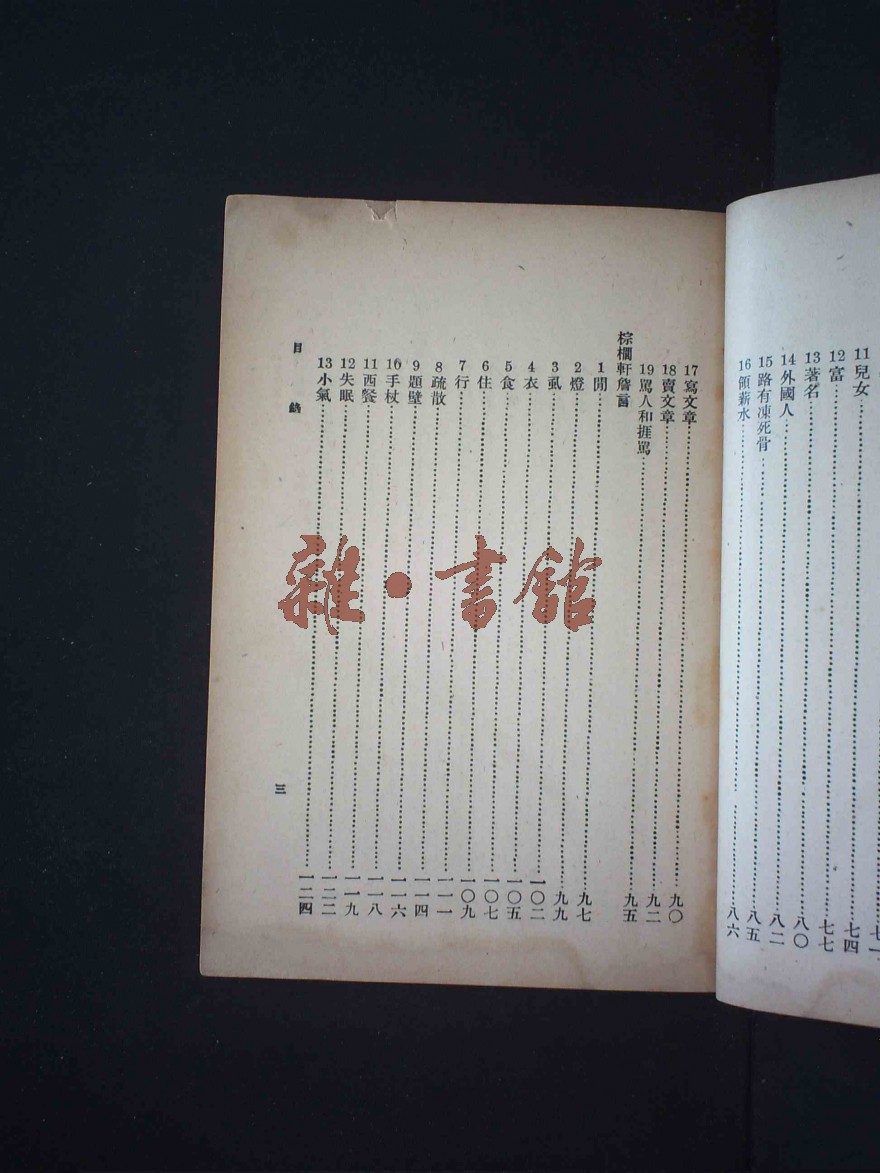 11兒女……七四
12富……七七
13著名……八〇
14外國人……八二
15路有凍死骨……八五
16領薪水……八六
17寫文章……九〇
18賣文章……九二
19罵人和捱罵……九五
棕櫚軒詹言
1閒……九七
2燈……九九
3虱……一〇二
4衣……一〇五
5食……一〇七
6住……一〇九
7行……一一一
8疏散……一一四
9題壁……一一六
10手杖……一一八
11西餐……一一九
12失眠……一二二
13小氣……一二四
目錄
三
雜·書館